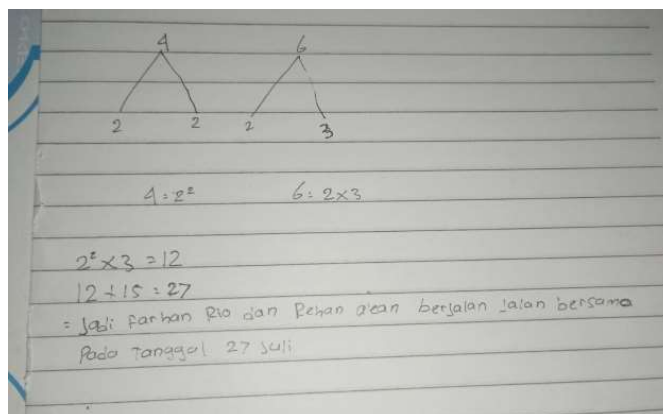 4 6
2 2 2 3
4 = 2² 6 = 2×3
2² × 3 = 12
12 + 15 = 27
= Jadi Farhan Rio dan Rehan akan berjalan jalan bersama
Pada Tanggal 27 Juli